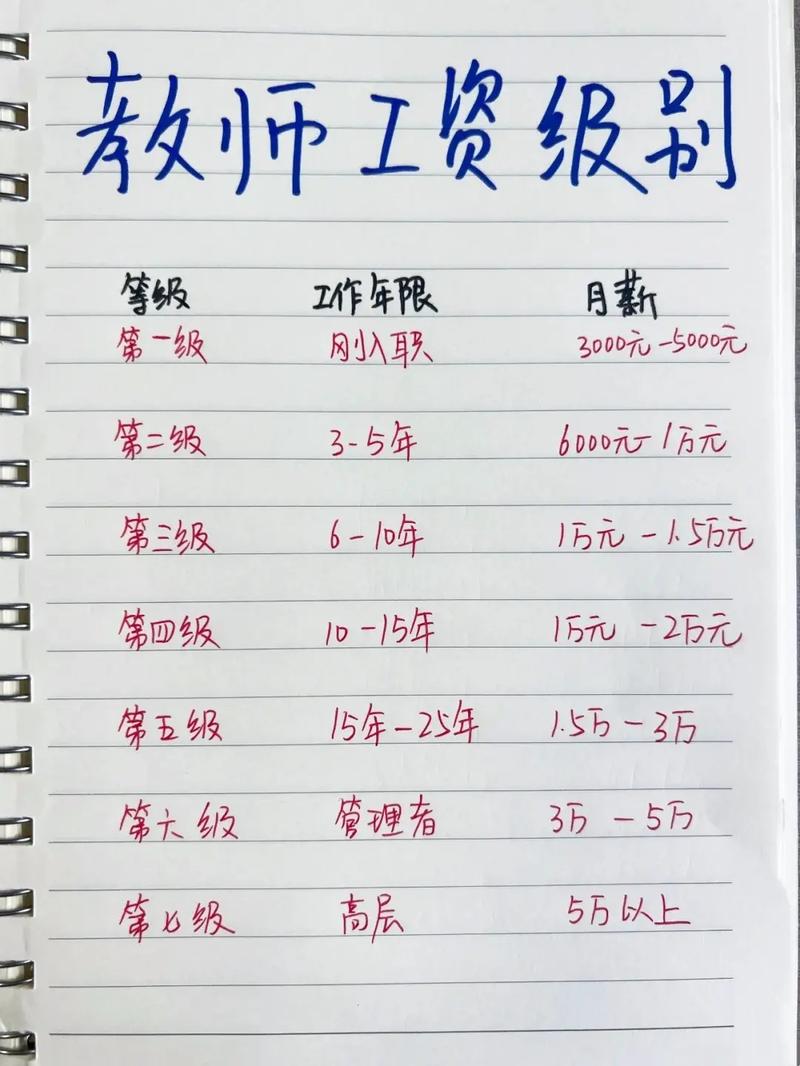 教师工资级别
等级 工作年限 月薪
第一级 刚入职 3000元-5000元
第二级 3-5年 6000元-1万元
第三级 6-10年 1万元-1.5万元
第四级 10-15年 1万元-2万元
第五级 15年-25年 1.5万-3万
第六级 管理者 3万-5万
第七级 高层 5万以上